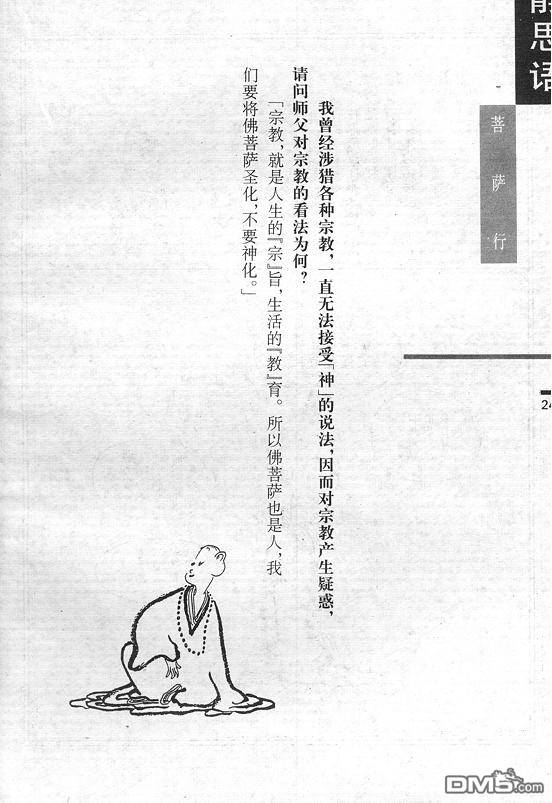 静思语
菩萨行
24
我曾经涉猎各种宗教，一直无法接受「神」的说法，因而对宗教产生疑惑，
请问师父对宗教的看法为何？
「宗教，就是人生的『宗』旨，生活的『教』育。所以佛菩萨也是人，我
们要将佛菩萨圣化，不要神化。」
DM5.com